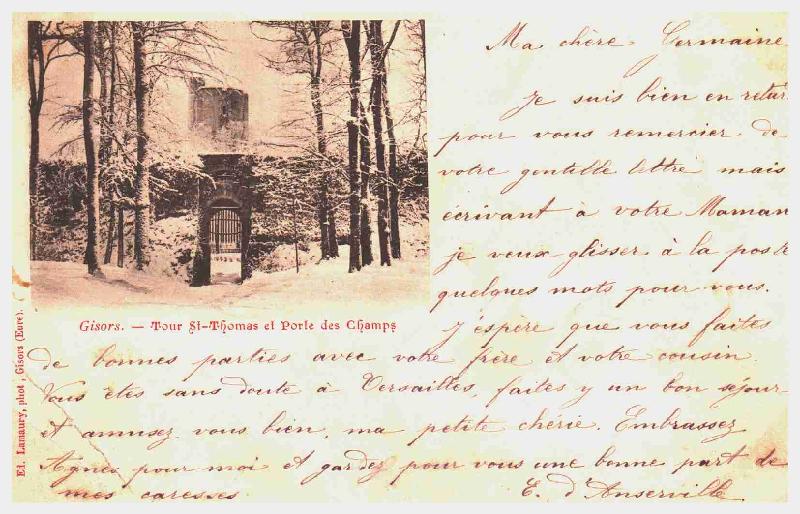 Ma chère Germaine
Je suis bien en retar
pour vous remercier de
votre gentille lettre mais
écrivant à votre Maman
je veux glisser à la poste
quelques mots pour vous.
J'espère que vous faites
de bonnes parties avec votre frère et votre cousin.
Vous êtes sans doute à Versailles, faites y un bon séjour
et amusez vous bien, ma petite chérie. Embrassez
Agnès pour moi et gardez pour vous une bonne part de
mes caresses
E. d'Anserville
Gisors. — Tour St-Thomas et Porte des Champs
Ed. Lamaury, phot, Gisors (Eure).